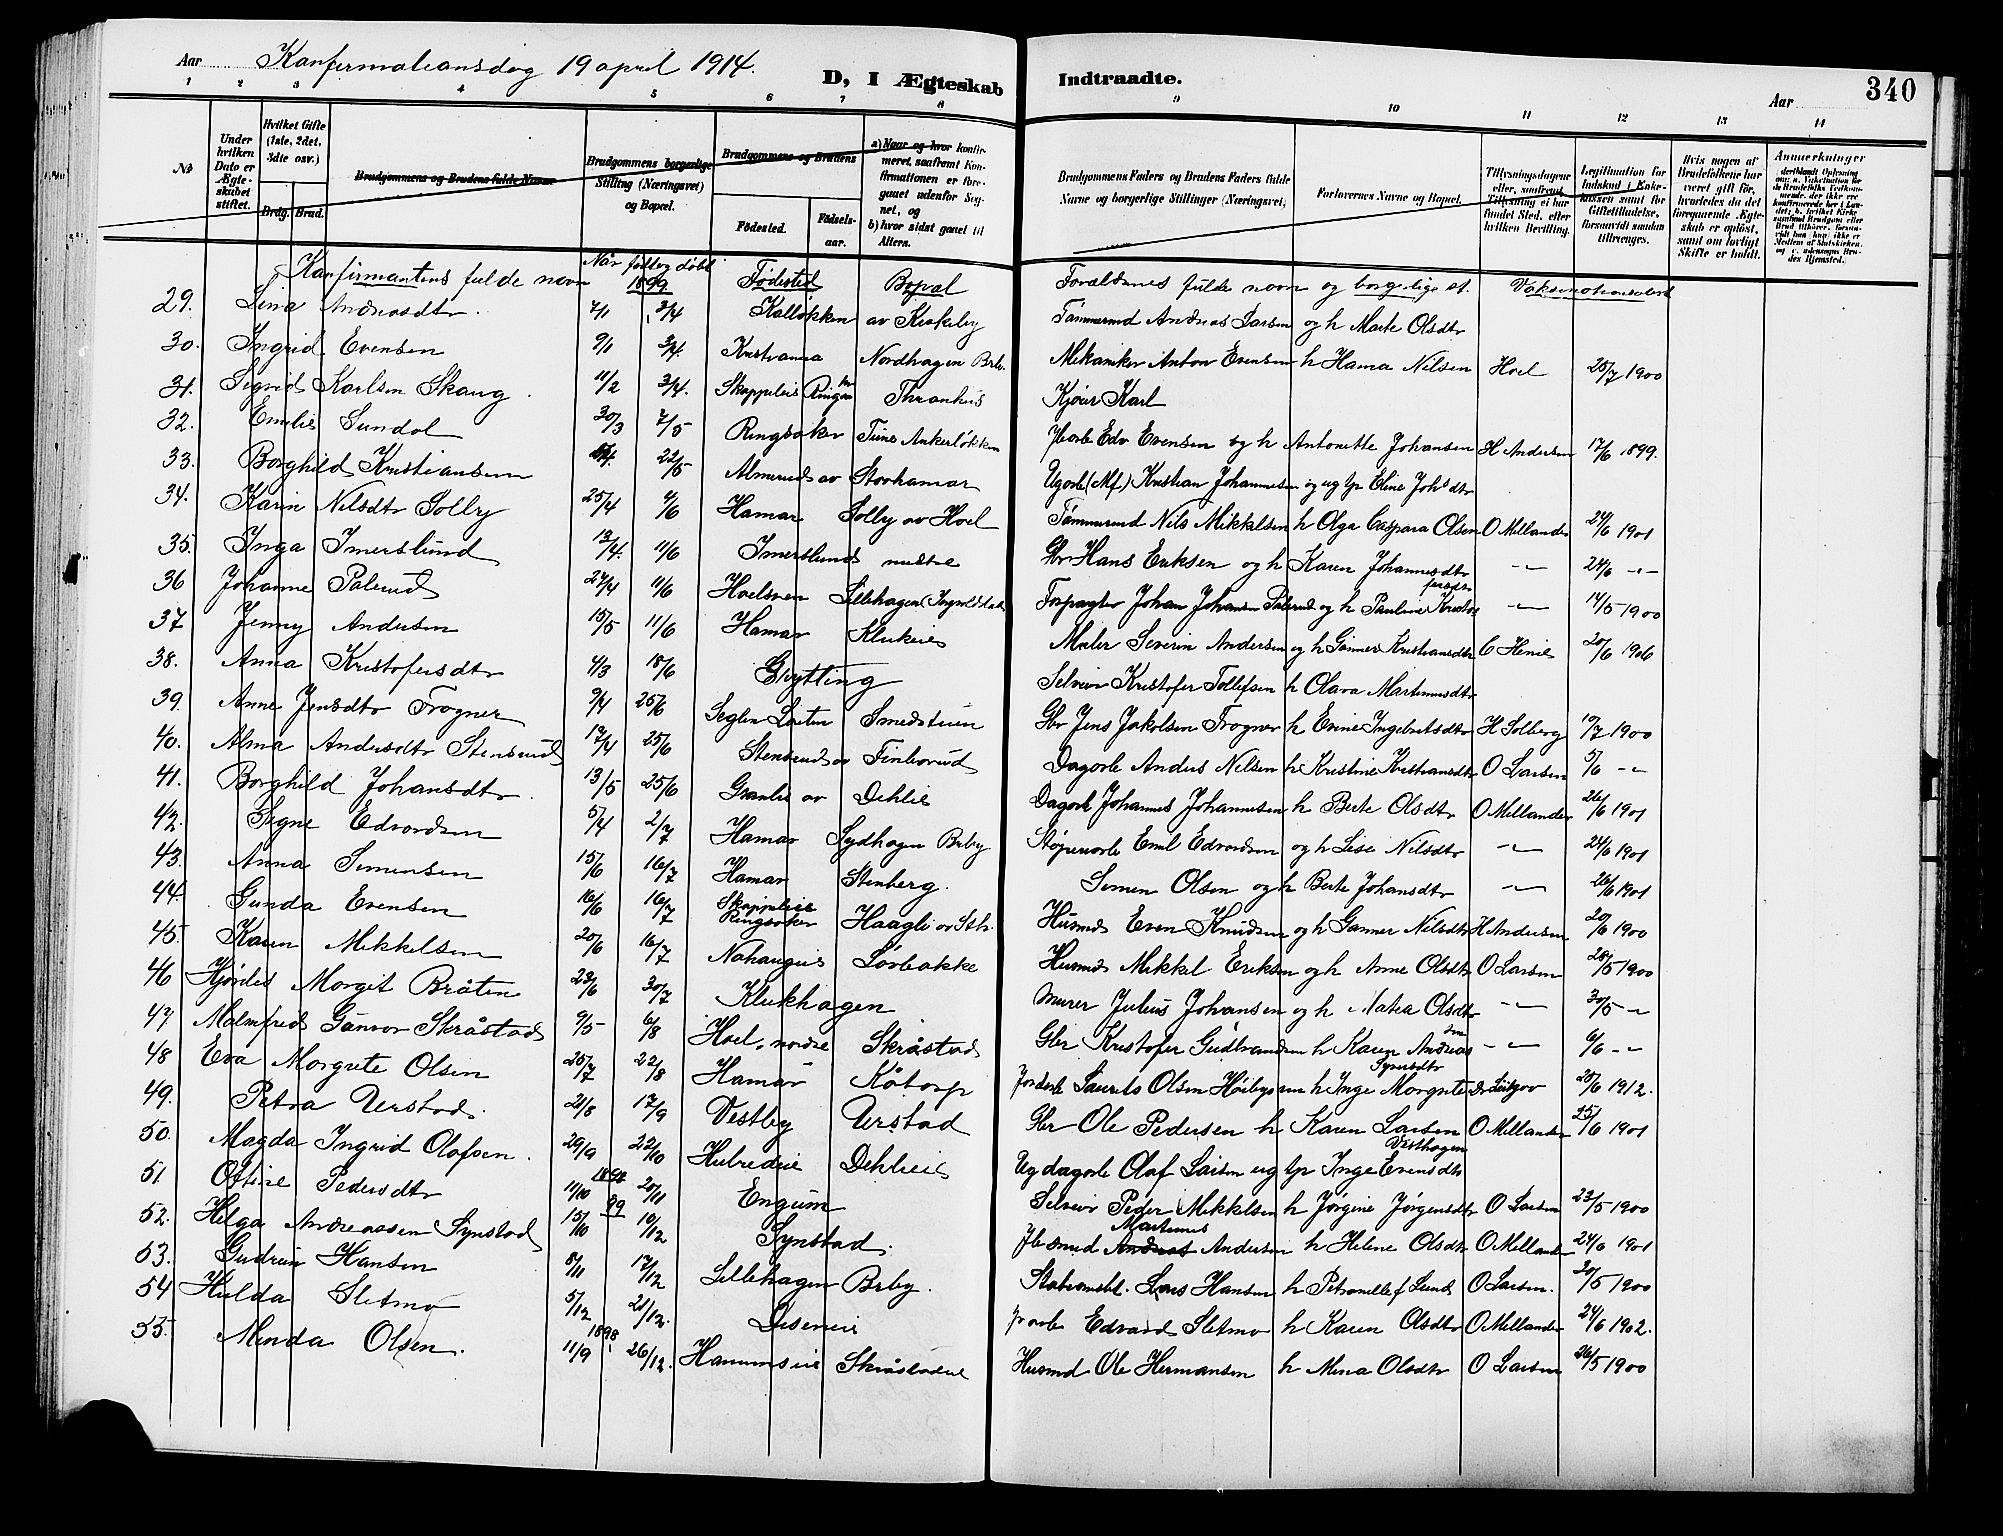 Aar Konfirmationsdag 19 april 1914.
D, I Ægteskab Indtraadte.
Aar 340
1 2 3 4 5 6 7 8 9 10 11 12 13 14
No Under hvilken Dato er Ægteskabet stiftet. Hvilket Gifte (1ste, 2det, 3die osv.) Brdg. Brud. Brudgommens og Brudens fulde Navne Brudgommens borgerlige Stilling (Næringsvei) og Bopæl. Brudgommens og Brudens Fødested. Fødselsaar. a) Naar og hvor konfirmeret, saafremt Konfirmationen er foregaaet udenfor Sognet, og b) hvor sidst gaaet til Alters. Brudgommens Faders og Brudens Faders fulde Navne og borgerlige Stillinger (Næringsvei) Forlovernes Navne og Bopæl. Tillysningsdagene eller, saafremt Tillysning ei har fundet Sted, efter hvilken Bevilling. Legitimation for Indskud i Enkekassen samt for Giftetilladelse, forsaavidt saadan tiltrænges. Hvis nogen af Brudefolkene har været gift før, hvorledes da det foregaaende Ægteskab er opløst, samt om lovligt Skifte er holdt. Anmærkninger
Konfirmantens fulde navn Når født og døbt 1899 Fødested Bopæl Forældrenes fulde navn og borgerlige st. Vaksinationsatest
29. Lina Andreasdtr. 7/1 3/4 Kalløkken av Kirkeby Tømmermd Andreas Larsen og h Marte Olsdtr
30. Ingrid Evensen 9/1 3/4. Kristiania Nordhagen Brby. Mekaniker Anton Evensen h Hama Nilsen Hoel 25/7 1900
31. Sigrid Karlsen Skaug. 11/2 3/4. Skappeleie Ringsaker Thranhus Kjører Karl
32. Emilie Sundal 30/3 7/5 Ringsaker Tune Ankerløkken Jbarb Edv Evensen og h Antonette Johansen H Andersen 17/6 1899.
33. Borghild Kristiansen 22/5 Almerud av Storhamar Ugarb (Mf.) Kristian Johannesen og ug tp Eline Johsdtr
34. Karin Nilsdtr Solby 25/4 4/6 Hamar Solby av Hoel Tømmermd Nils Mikkelsen h Olga Caspara Olsen O Millander 24/6 1901
35. Inga Imerslund 13/4. 11/6 Imerslund mellre Gbr Hans Eriksen og h Karen Johannesdtr -"- 24/6 -"-
36 Johanne Palerud 27/4 11/6 Hoelsven Lillehagen (Ingvoldstad) Forpagter Johan Johansen Palerud og h Pauline Kristofersdtr -"- 14/5 1900
37 Jenny Andersen 15/5 11/6 Hamar Klukeie Maler Severin Andersen og h Gunner Kristiansdtr C Henie 20/6 1906
38. Anna Kristofersdtr 4/3 18/6 Grytting Selveier Kristofer Tollefsen h Olava Martinusdtr
39. Anne Jensdtr Frogner 9/4 25/6 Seglen Løiten Smedstuen Gbr Jens Jakobsen Frogner h Erine Ingebretsdtr H Solberg 10/7 1900
40. Alma Andersdtr Stensrud 17/4 25/6 Stensrud av Finborud Dagarb Anders Nilsen h Kristine Kristiansdtr O Larsen 5/6 -"-
41. Borghild Johansdtr. 13/5 25/6 Granlie av Dehlie Dagarb Johannes Johannesen h Berte Olsdtr O Millander 26/6 1901
42. Signe Edvardsen 5/4 2/7 Hamar Sydhagen Brby Støperarb Emil Edvardsen og h Lise Nilsdtr -"- 24/6 1901
43. Anna Simensen 15/6 16/7 Hamar Stenberg. Simen Olsen og h Berte Johansdtr -"- 26/6 1901
44. Gunda Evensen 16/6 16/7 Skappeleie Ringsaker Haagli av Sth. Husmd Even Knudsen og h Gunner Nilsdtr H Andersen 20/6 1900
45. Karen Mikkelsen 20/6 16/7 Nohaugeie Sørbakke Husmd Mikkel Eriksen og h Anne Olsdtr O Larsen 28/5 1900
46 Hjørdis Margit Bråten 23/6 30/7 Klukhagen Murer Julius Johansen og h Matea Olsdtr -"- 30/5 -"-
47 Malmfrid Gunvor Skråstad 9/5 6/8 Hoel, nordre Skråstad Gbr Kristofer Gudbrandsen h Karen Andreasen -"- 6/6 -"-
48 Eva Margrete Olsen 25/7 22/8 Hamar Kåtorp Jordarb Laurits Olsen Høibysen h Inge Margrete Synesdtr Dr Lützow 20/6 1912.
49. Petra Urstad. 21/8 17/9 Vestby Urstad Gbr Ole Pedersen h Karen Larsen O Millander 25/6 1901
50. Magda Ingrid Olafsen. 29/9 22/10 Hubredeie Dehlieie Ug dagarb Olaf Larsen ug tp Inge Evensdtr Vesthagen
51 Ottine Pedersdtr 11/10 1898 20/11 Engum Selveier Peder Mikkelsen h Jørgine Jørgensdtr O Larsen 23/5 1900
52. Helga Andreassen Synstad 99 15/10 10/12 Synstad. Jbsmed Andreas Martinus Andersen h Helene Olsdtr O Millander 24/6 1901
53. Gudrun Hansen 8/11 17/12 Lillehagen Brby. Lars Hansen h Petronelle f Lund O Larsen. 20/5 1900
54 Hulda Sletmo 5/12 21/12. Diseneie Edvard Sletmo h Karen Olsdtr O Millander 24/6 1902.
55. Minda Olsen. 1898. 11/9 26/12. Hommseie Skråstadeie Husmd Ole Hermansen h Mina Olsdtr O Larsen 26/5 1900